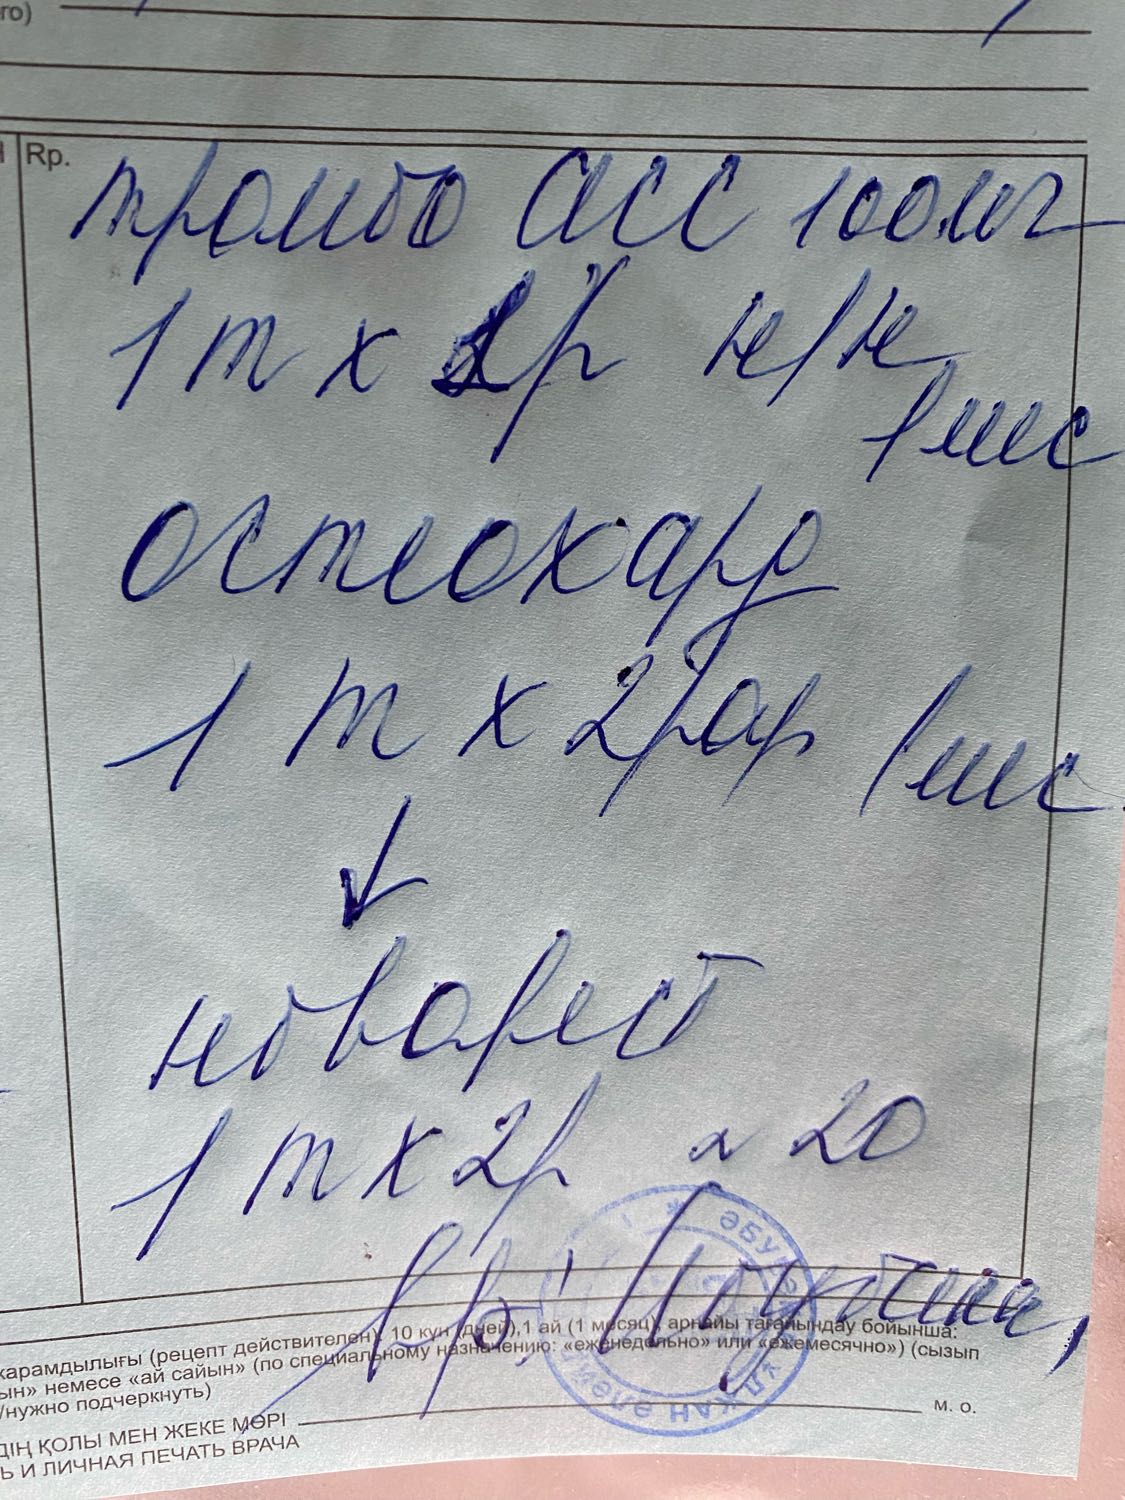 го)
Rp.
тромбо асс 100мг
1 т х 1р н/н
1 мес
остеокард
1 т х 2 рар 1 мес
новарест
1 т х 2р 20
карамдылығы (рецепт действителен), 10 күн (дней),1 ай (1 месяц), арнайы тағайындау бойынша:
ын» немесе «ай сайын» (по специальному назначению: «еженедельно» или «ежемесячно») (сызып
/нужно подчеркнуть)
ДІҢ ҚОЛЫ МЕН ЖЕКЕ МӨРІ
м. о.
Ь И ЛИЧНАЯ ПЕЧАТЬ ВРАЧА